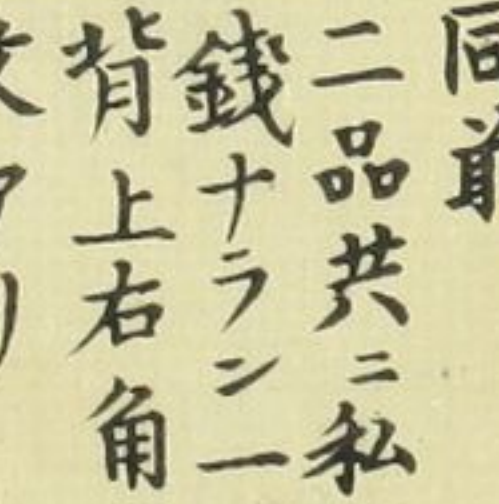 同前
二品共ニ私
銭ナラン一
背上右角
文アリ